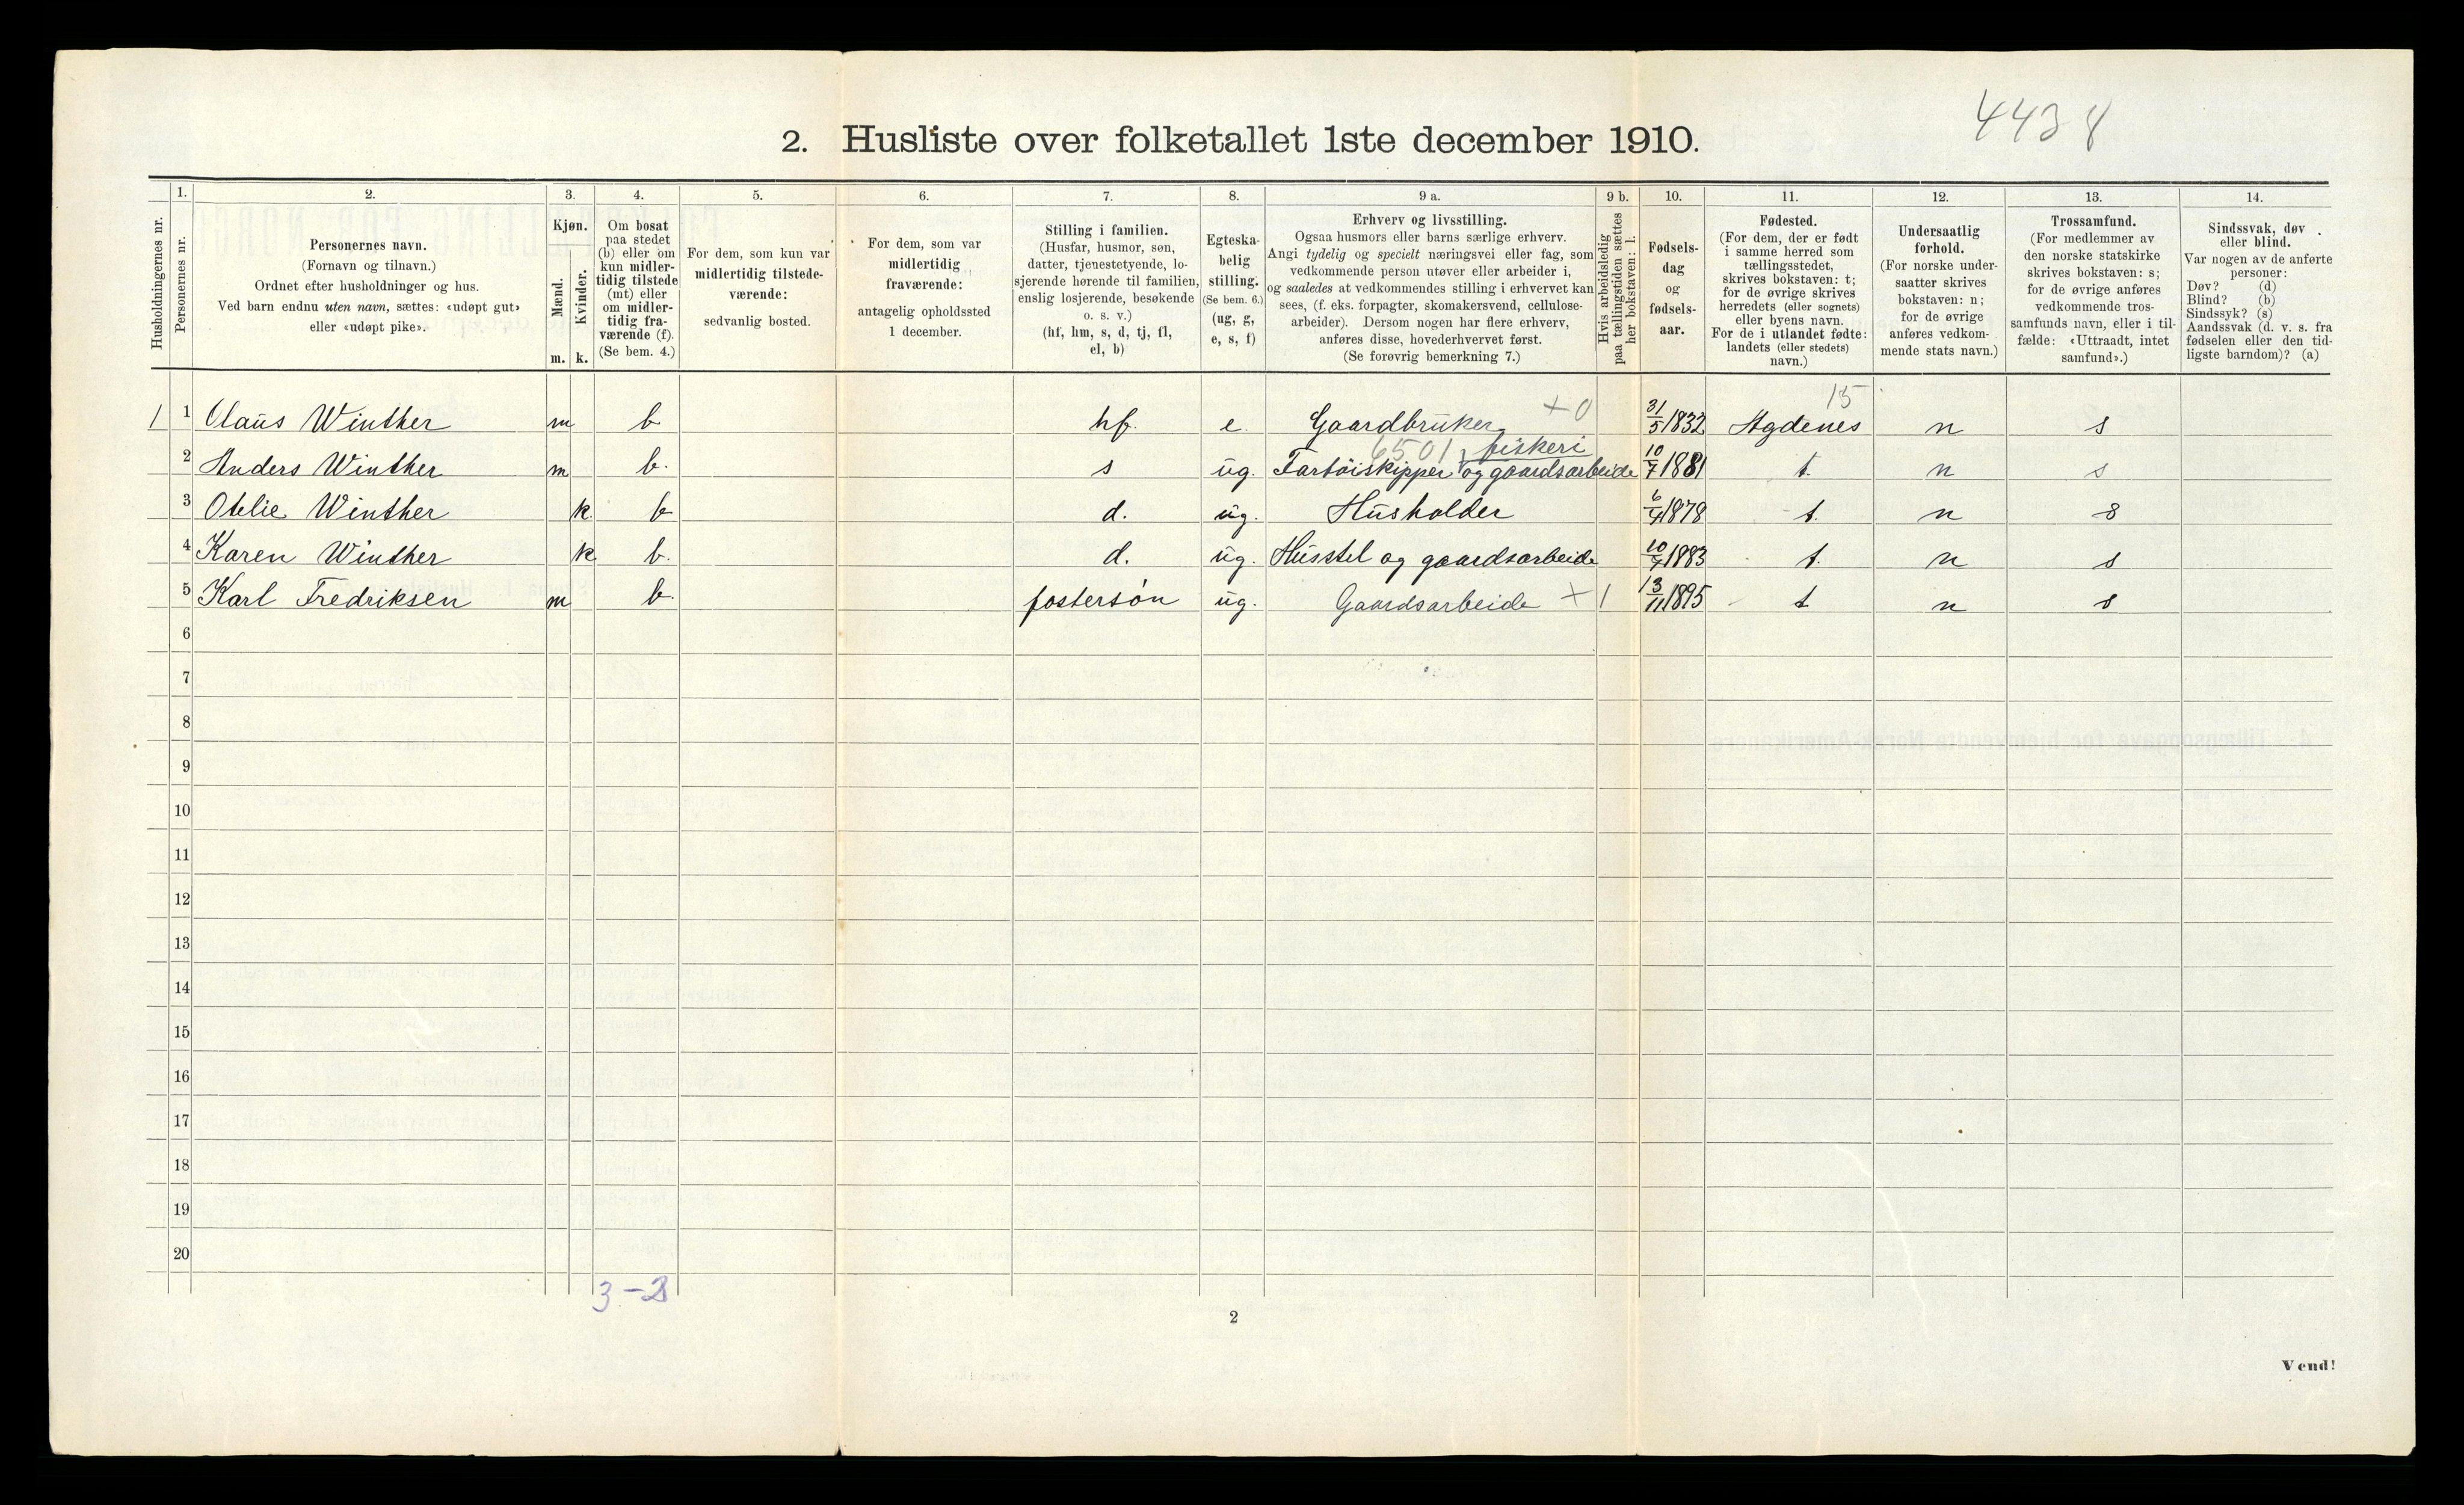 4438
2. Husliste over folketallet 1ste december 1910.
Husholdningernes nr.
1.
Personernes nr.
2.
Personernes navn.
(Fornavn og tilnavn.)
Ordnet efter husholdninger og hus.
Ved barn endnu uten navn, sættes: «udøpt gut»
eller «udøpt pike».
3.
Kjøn.
Mænd.
Kvinder.
m. k.
4.
Om bosat
paa stedet
(b) eller om
kun midler-
tidig tilstede
(mt) eller
om midler-
tidig fra-
værende (f).
(Se bem. 4.)
5.
For dem, som kun var
midlertidig tilstede-
værende:
sedvanlig bosted.
6.
For dem, som var
midlertidig
fraværende:
antagelig opholdssted
1 december.
7.
Stilling i familien.
(Husfar, husmor, søn,
datter, tjenestetyende, lo-
sjerende hørende til familien,
enslig losjerende, besøkende
o. s. v.)
(hf, hm, s, d, tj, fl,
el, b)
8.
Egteska-
belig
stilling.
(Se bem. 6.)
(ug, g,
e, s, f)
9 a.
Erhverv og livsstilling.
Ogsaa husmors eller barns særlige erhverv.
Angi tydelig og specielt næringsvei eller fag, som
vedkommende person utøver eller arbeider i,
og saaledes at vedkommendes stilling i erhvervet kan
sees, (f. eks. forpagter, skomakersvend, cellulose-
arbeider). Dersom nogen har flere erhverv,
anføres disse, hovederhvervet først.
(Se forøvrig bemerkning 7.)
9 b.
Hvis arbeidsledig
paa tællingstiden sættes
her bokstaven: l.
10.
Fødsels-
dag
og
fødsels-
aar.
11.
Fødested.
(For dem, der er født
i samme herred som
tællingsstedet,
skrives bokstaven: t;
for de øvrige skrives
herredets (eller sognets)
eller byens navn.
For de i utlandet fødte:
landets (eller stedets)
navn.)
12.
Undersaatlig
forhold.
(For norske under-
saatter skrives
bokstaven: n;
for de øvrige
anføres vedkom-
mende stats navn.)
13.
Trossamfund.
(For medlemmer av
den norske statskirke
skrives bokstaven: s;
for de øvrige anføres
vedkommende tros-
samfunds navn, eller i til-
fælde: «Uttraadt, intet
samfund».)
14.
Sindssvak, døv
eller blind.
Var nogen av de anførte
personer:
Døv? (d)
Blind? (b)
Sindssyk? (s)
Aandssvak (d. v. s. fra
fødselen eller den tid-
ligste barndom)? (a)
+0 15
1 1 Claus Winther m b hf. e. Gaardbruker 31/5 1832 Agdenes n s
6501, fiskeri
2 Anders Winther m b. s ug. Fartöiskipper og gaardsarbeide 10/7 1881 t. n s
3 Otelie Winther k b d. ug. Husholder 6/4 1878 t. n s
4 Karen Winther k b. d. ug. Husstel og gaardsarbeide 1883 t. n s
5 Karl Fredriksen m b. fostersön ug. Gaardsarbeide +1 13/11 1895 t n s
6
7
8
9
10
11
12
13
14
15
16
17
18
19
20
3-2
2
Vend!